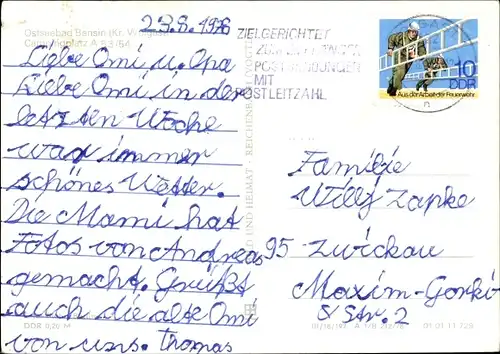 23.8.1978
Ostseebad Bansin (Kr.
Campingplatz A 53/54
Liebe Omi u. Opa
Liebe Omi in der
letzten Woche
war immer
schönes Wetter.
Die Mami hat
Fotos von Andreas
gemacht. Grüßt
auch die alte Omi
von uns. Thomas
DDR 0,20 M
BILD UND HEIMAT · REICHENBACH
ZIELGERICHTET
POSTSENDUNGEN
MIT
POSTLEITZAHL
10
DDR
Aus der Arbeit der Feuerwehr
Familie
Willy Zapke
95 Zwickau
Maxim-Gorki
Str. 2
01 01 11 129